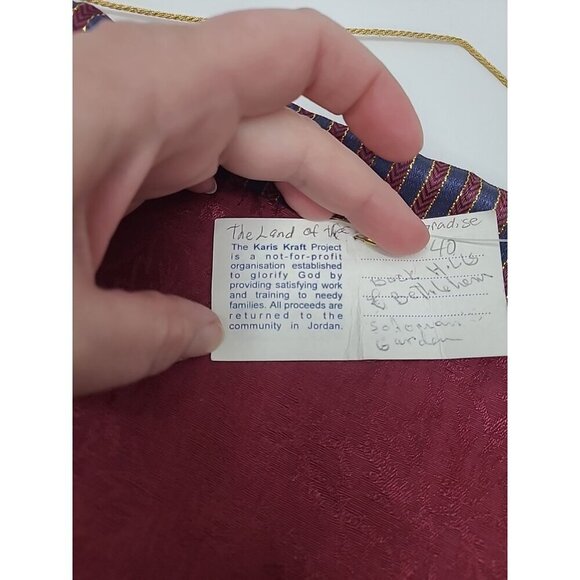 The Land of the
The Karis Kraft Project
is a not-for-profit
organisation established
to glorify God by
providing satisfying work
and training to needy
families. All proceeds are
returned to the
community in Jordan.
40
Back Hills
& Bethlehem
Garden